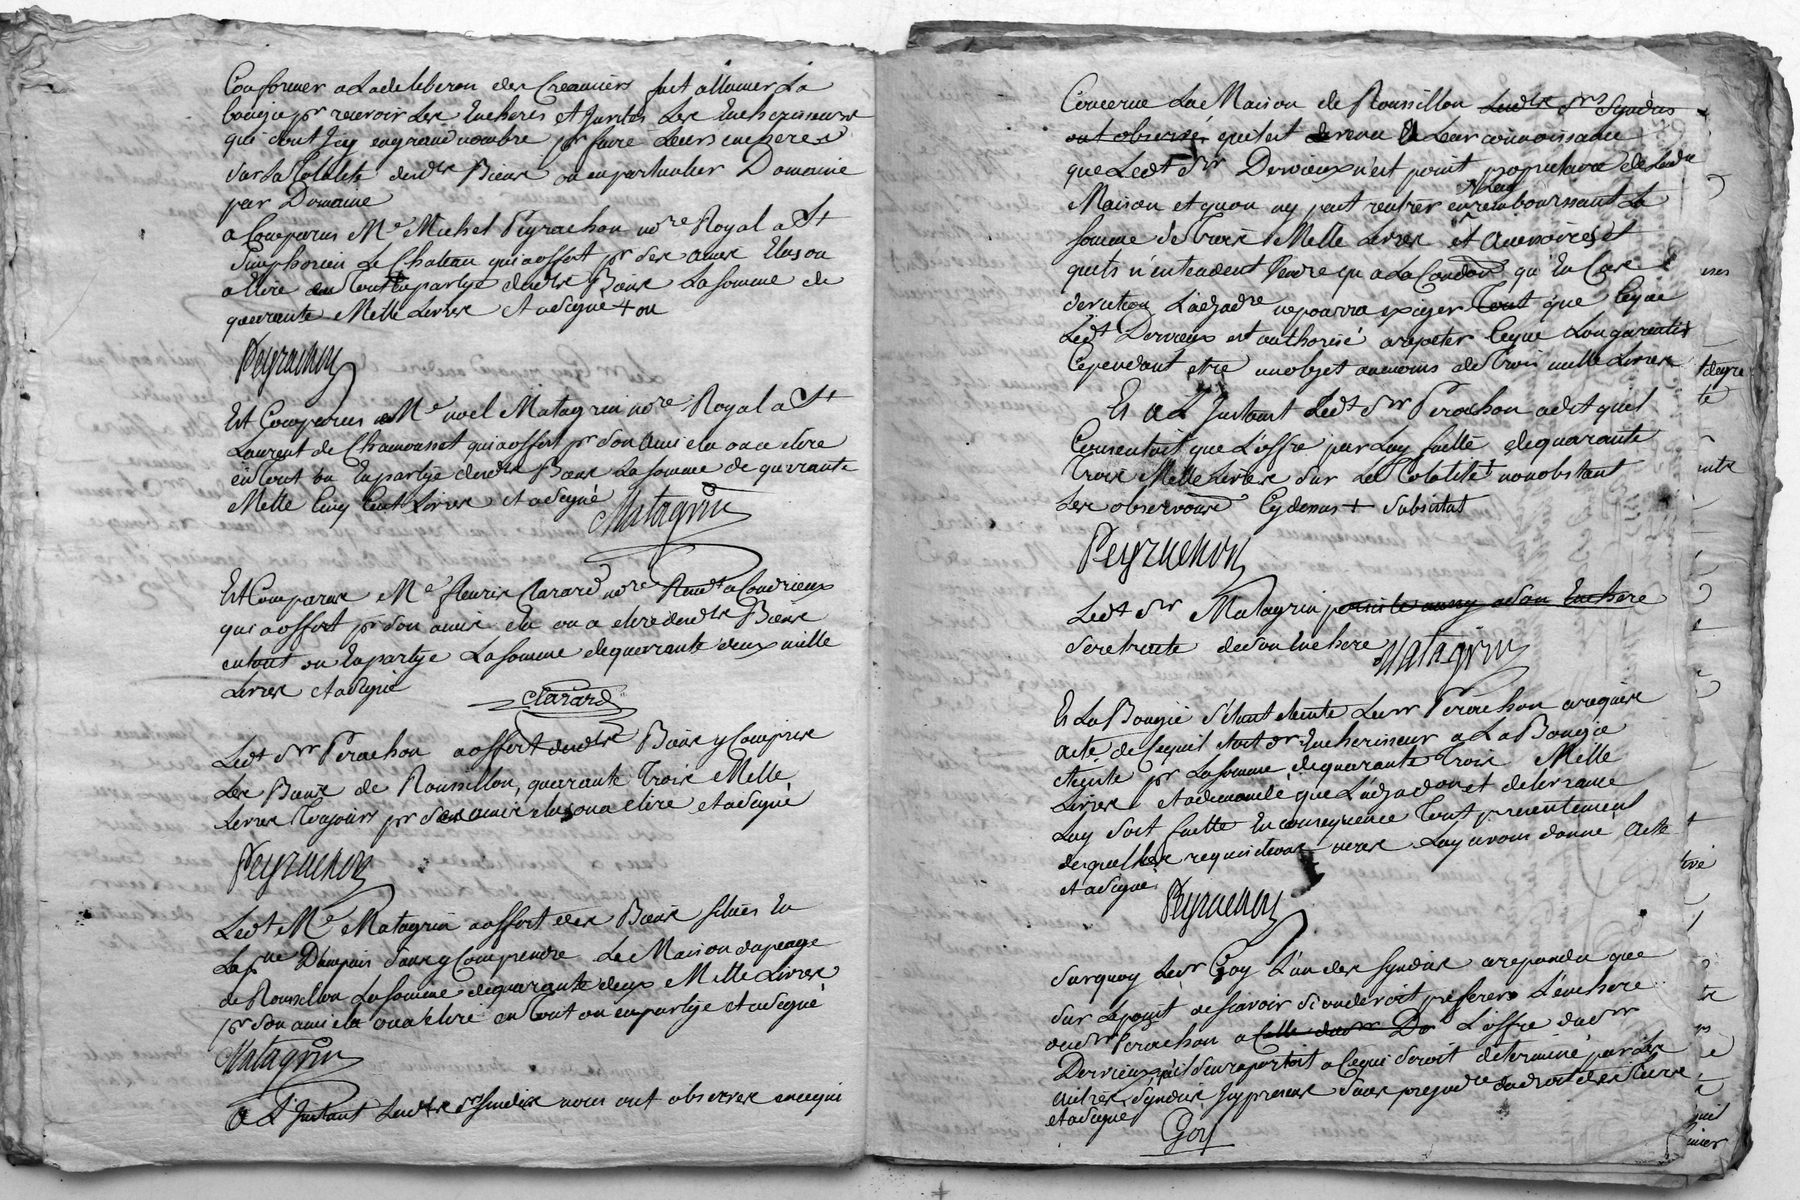 Conformer a La deliberon des Creanciers fait allumer La
bougie pr recevoir Les Encheres et Invités Les Encherisseurs
qui sont Icy en grand nombre pr faire Leurs encheres
sur La Totalité desdts Biens ou en particulier Domaine
par Domaine
a Comparus Me Michel Peyrachon nore Royal a St
Simphorien Le Chateau qui a offert pr ses amis Elus ou
a Elire en Tout ou En partye desdts Biens La somme de
quarante Mille Livres et a signé
Peyrachon
Est Comparus Me noel Matagrin nore Royal a St
Laurent de Chamousset qui a offert pr son Ami elu ou a elire
en Tout ou En partye desdts Biens La somme de quarante
Mille Cinq Cent Livres et a signé
Matagrin
Est Comparus Me fleuris Clarard nore a Condrieux
qui a offert pr son amis elu ou a elire desdts Biens
en tout ou En partye La somme de quarante deux mille
Livres et a signé
Clarard
Ledt Sr Perachon a offert desdts Biens y Compris
Les Biens de Roussillon, quarante Trois Mille
Livres Toujours pr ses amis elus ou a elire et a signé
Peyrachon
Ledt Me Matagrin a offert des Biens situés En
La pne D'ampuis sans y Comprendre La Maison du peage
de Roussillon La somme de quarante deux Mille Livres
pr son ami elu ou a Elire en Tout ou en partye et a signé
Matagrin
a L'Instant Lesdts Srs sindics nous ont observer en ce qui
Concerne La Maison de Roussillon Lesdts Srs Syndics
ont observé qu'etant venu a Leur connoissance
que Ledt Sr Dervieux n'est point proprietaire de Ladte
Maison et qu'on ny peut rentrer en remboursant La
somme de Trois Mille Livres et accessoires et
qu'ils n'entendent Vendre qu'a La Condon qu'En Cas
d'eviction L'adjadre ne pourra exiger que Ce que
Ledt Dervieux est authorisé a repeter Ce que Lon garentit
Cependant etre un objet au moins de Trois mille Livres
Et a L'Instant Ledt Sr Perachon a dit qu'il
Consentoit que L'offre par Luy faitte de quarante
Trois Mille Livres sur La Totalité nonobstant
Les observons Cy dessus + subsistat
Peyrachon
Ledt Sr Matagrin persiste aussy a son Enchere
se retracte de son Enchere
Matagrin
Et La Bougie s'etant eteinte Le sr Perachon a requis
acte de Ce quil etoit dr Encherisseur a La Bougie
eteinte pr La somme de quarante Trois Mille
Livres et a demandé que L'adjadon et delivrance
Luy soit faitte En consequence Tout presentement
desquelles requisitions Luy avons donné Acte
et a signé
Peyrachon
Surquoy Le sr Goy L'un des syndics a repondu que
sur Le point de scavoir si on devoit preferer L'enchere
du sr Perachon a celle du sr De L'offre du sr
Dervieux il s'en raportoit a Ce qui seroit determiné par Les
autres Syndics Icy presens sans prejudce du droit des Parties
et a signé
Goy